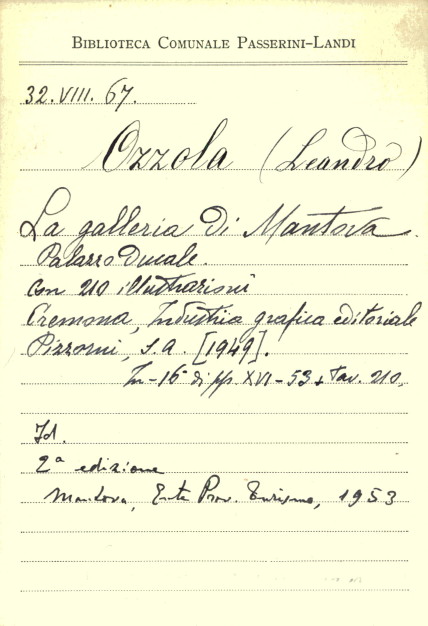 BIBLIOTECA COMUNALE PASSERINI-LANDI
32.VIII. 67.
Ozzola (Leandro)
La galleria di Mantova.
Palazzo Ducale.
con 210 illustrazioni
Cremona, Industria grafica editoriale
Pizzorni, s.a. [1949].
In-16° di pp. XVI-53 + tav. 210.
Id.
2ª edizione
Mantova, Ente Prov. Turismo, 1953